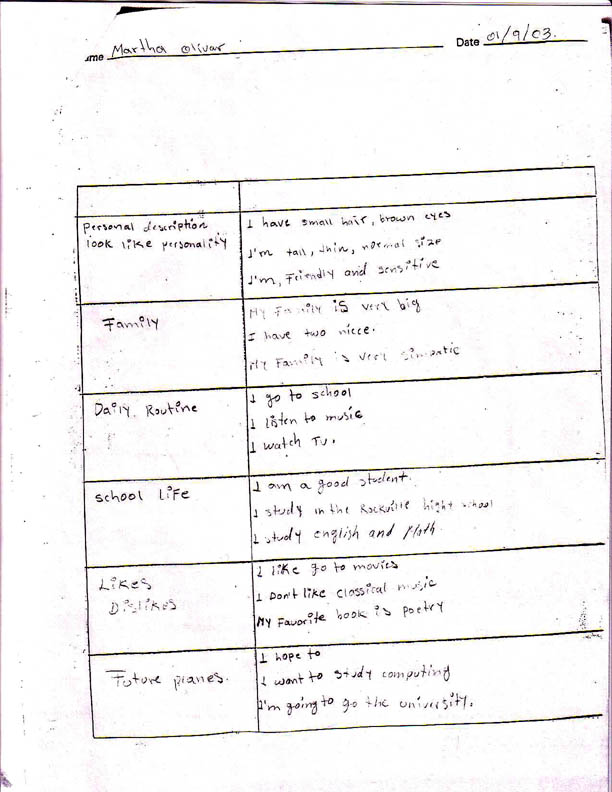 ame Martha Olivar Date 01/9/03.
Personal description
look like personality
I have small hair, brown eyes
I'm tall, thin, normal size
I'm, Friendly and sensitive
Family
My Family is very big
I have two niece.
My Family is very simpatic
Daily Routine
I go to school
I listen to music
I watch TV.
school Life
I am a good student.
I study in the Rockville hight school
I study english and Math.
Likes
Dislikes
I like go to movies
I Don't like classical music
My Favorite book is poetry
Future planes.
I hope to
I want to study computing
I'm going to go the university.